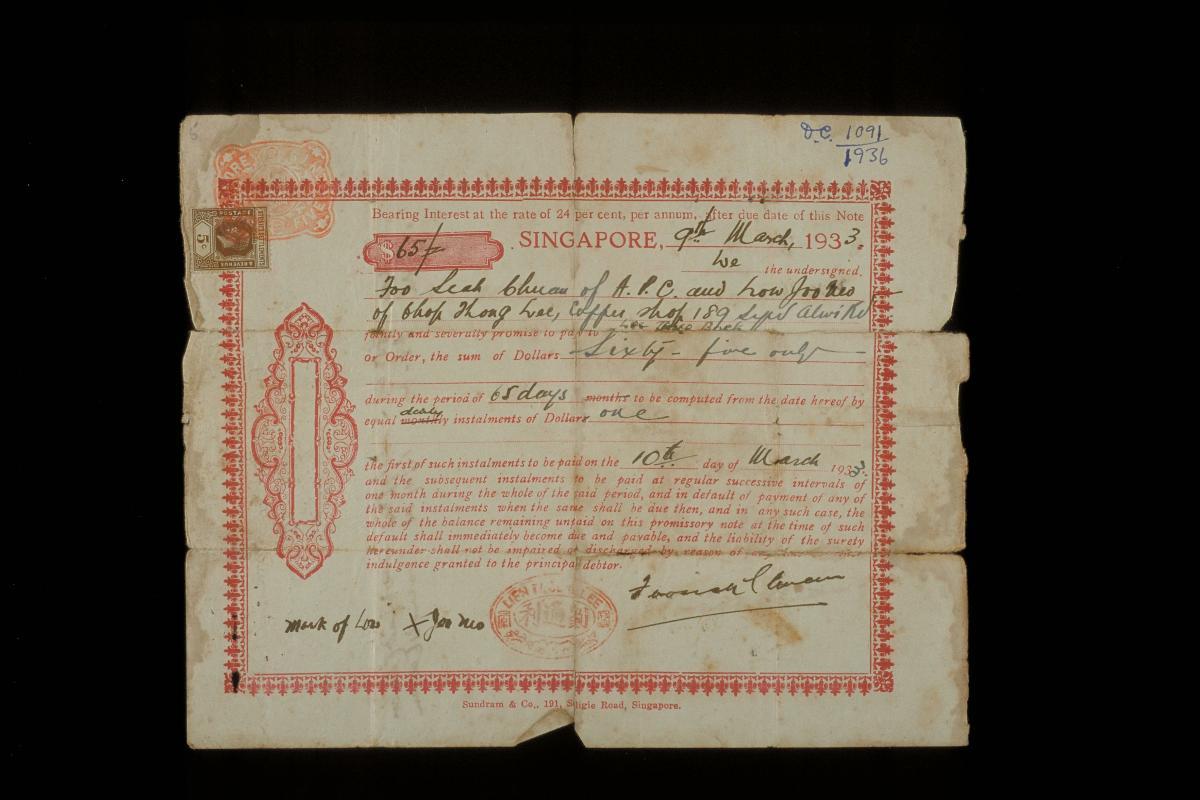 D.C. 1091
1936
Bearing Interest at the rate of 24 per cent, per annum, after due date of this Note
$65/-
SINGAPORE, 9th March, 1933.
We the undersigned.
Foo Seah Chuan of A. P. C. and Low Joo Neo
of Chop Thong Lee, Coffee shop 189 Syed Alwi Rd
jointly and severally promise to pay to
or Order, the sum of Dollars Sixty-five only
during the period of 65 days months to be computed from the date hereof by
daily
equal monthly instalments of Dollars one
the first of such instalments to be paid on the 10th day of March 1933.
and the subsequent instalments to be paid at regular successive intervals of
one month during the whole of the said period, and in default of payment of any of
the said instalments when the same shall be due then, and in any such case, the
whole of the balance remaining unpaid on this promissory note at the time of such
default shall immediately become due and payable, and the liability of the surety
hereunder shall not be impaired or discharged by reason of
indulgence granted to the principal debtor.
5c
POSTAGE
& REVENUE
LEE
Mark of Low X Joo Neo
Sundram & Co., 191, Seligie Road, Singapore.